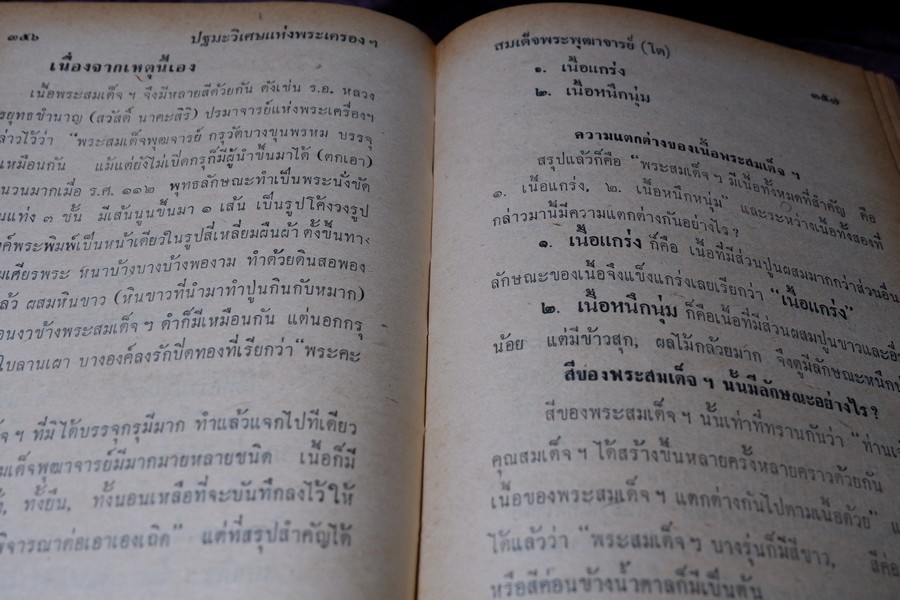 ๓๕๖ ปฐมะวิเศษแห่งพระเครอง ฯ
เนื่องจากเหตุนี้เอง
เนื้อพระสมเด็จ ฯ จึงมีหลายสีด้วยกัน ดังเช่น ร.อ. หลวง
รยุทธชำนาญ (สวัสดิ์ นาคะสิริ) ปรมาจารย์แห่งพระเครื่องฯ
ล่าวไว้ว่า "พระสมเด็จพุฒจารย์ กรุวัดบางขุนพรหม บรรจุ
เหมือนกัน แม้แต่ยังไม่เปิดกรุก็มีผู้นำขึ้นมาได้ (ตกเอา)
นวนมากเมื่อ ร.ศ. ๑๑๒ พุทธลักษณะทำเป็นพระนั่งขัด
นแท่ง ๓ ชั้น มีเส้นนูนขึ้นมา ๑ เส้น เป็นรูปโค้งวงรูป
งค์พระพิมพ์เป็นหน้าเดียวในรูปสี่เหลี่ยมผืนผ้า ตั้งขึ้นทาง
มเศียรพระ หนาบ้างบางบ้างพองาม ทำด้วยดินสอพอง
ล้ว ผสมหินขาว (หินขาวที่นำมาทำปูนกินกับหมาก)
อนงาช้างพระสมเด็จ ฯ ดำก็มีเหมือนกัน แต่นอกกรุ
ใบลานเผา บางองค์ลงรักปิดทองที่เรียกว่า "พระคะ
จ ฯ ที่มิได้บรรจุกรุมีมาก ทำแล้วแจกไปทีเดียว
มเด็จพุฒาจารย์มีมากมายหลายชนิด เนื้อก็มี
ทั้งยืน, ทั้งนอนเหลือที่จะบันทึกลงไว้ให้
พิจารณาต่อเอาเองเถิด" แต่ที่สรุปสำคัญได้
สมเด็จพระพุฒาจารย์ (โต) ๓๕๗
๑. เนื้อแกร่ง
๒. เนื้อหนึกนุ่ม
ความแตกต่างของเนื้อพระสมเด็จ ฯ
สรุปแล้วก็คือ "พระสมเด็จ ฯ มีเนื้อทั้งหมดที่สำคัญ คือ
๑. เนื้อแกร่ง, ๒. เนื้อหนึกหนุ่ม" และระหว่างเนื้อทั้งสองที่
กล่าวมานี้มีความแตกต่างกันอย่างไร ?
๑. เนื้อแกร่ง ก็คือ เนื้อที่มีส่วนปูนผสมมากกว่าส่วนอื่น
ลักษณะของเนื้อจึงแข็งแกร่งเลยเรียกว่า "เนื้อแกร่ง"
๒. เนื้อหนึกนุ่ม ก็คือเนื้อที่มีส่วนผสมปูนขาวและอื่
น้อย แต่มีข้าวสุก, ผลไม้กล้วยมาก จึงดูมีลักษณะหนึกน
สีของพระสมเด็จ ฯ นั้นมีลักษณะอย่างไร ?
สีของพระสมเด็จ ฯ นั้นเท่าที่ทราบกันว่า "ท่านเจ้
คุณสมเด็จ ฯ ได้สร้างขึ้นหลายครั้งหลายคราวด้วยกัน
เนื้อของพระสมเด็จ ฯ แตกต่างกันไปตามเนื้อด้วย"
ได้แล้วว่า "พระสมเด็จ ฯ บางรุ่นก็มีสีขาว, สีค่อ
หรือสีค่อนข้างน้ำตาลก็มีเป็นต้น